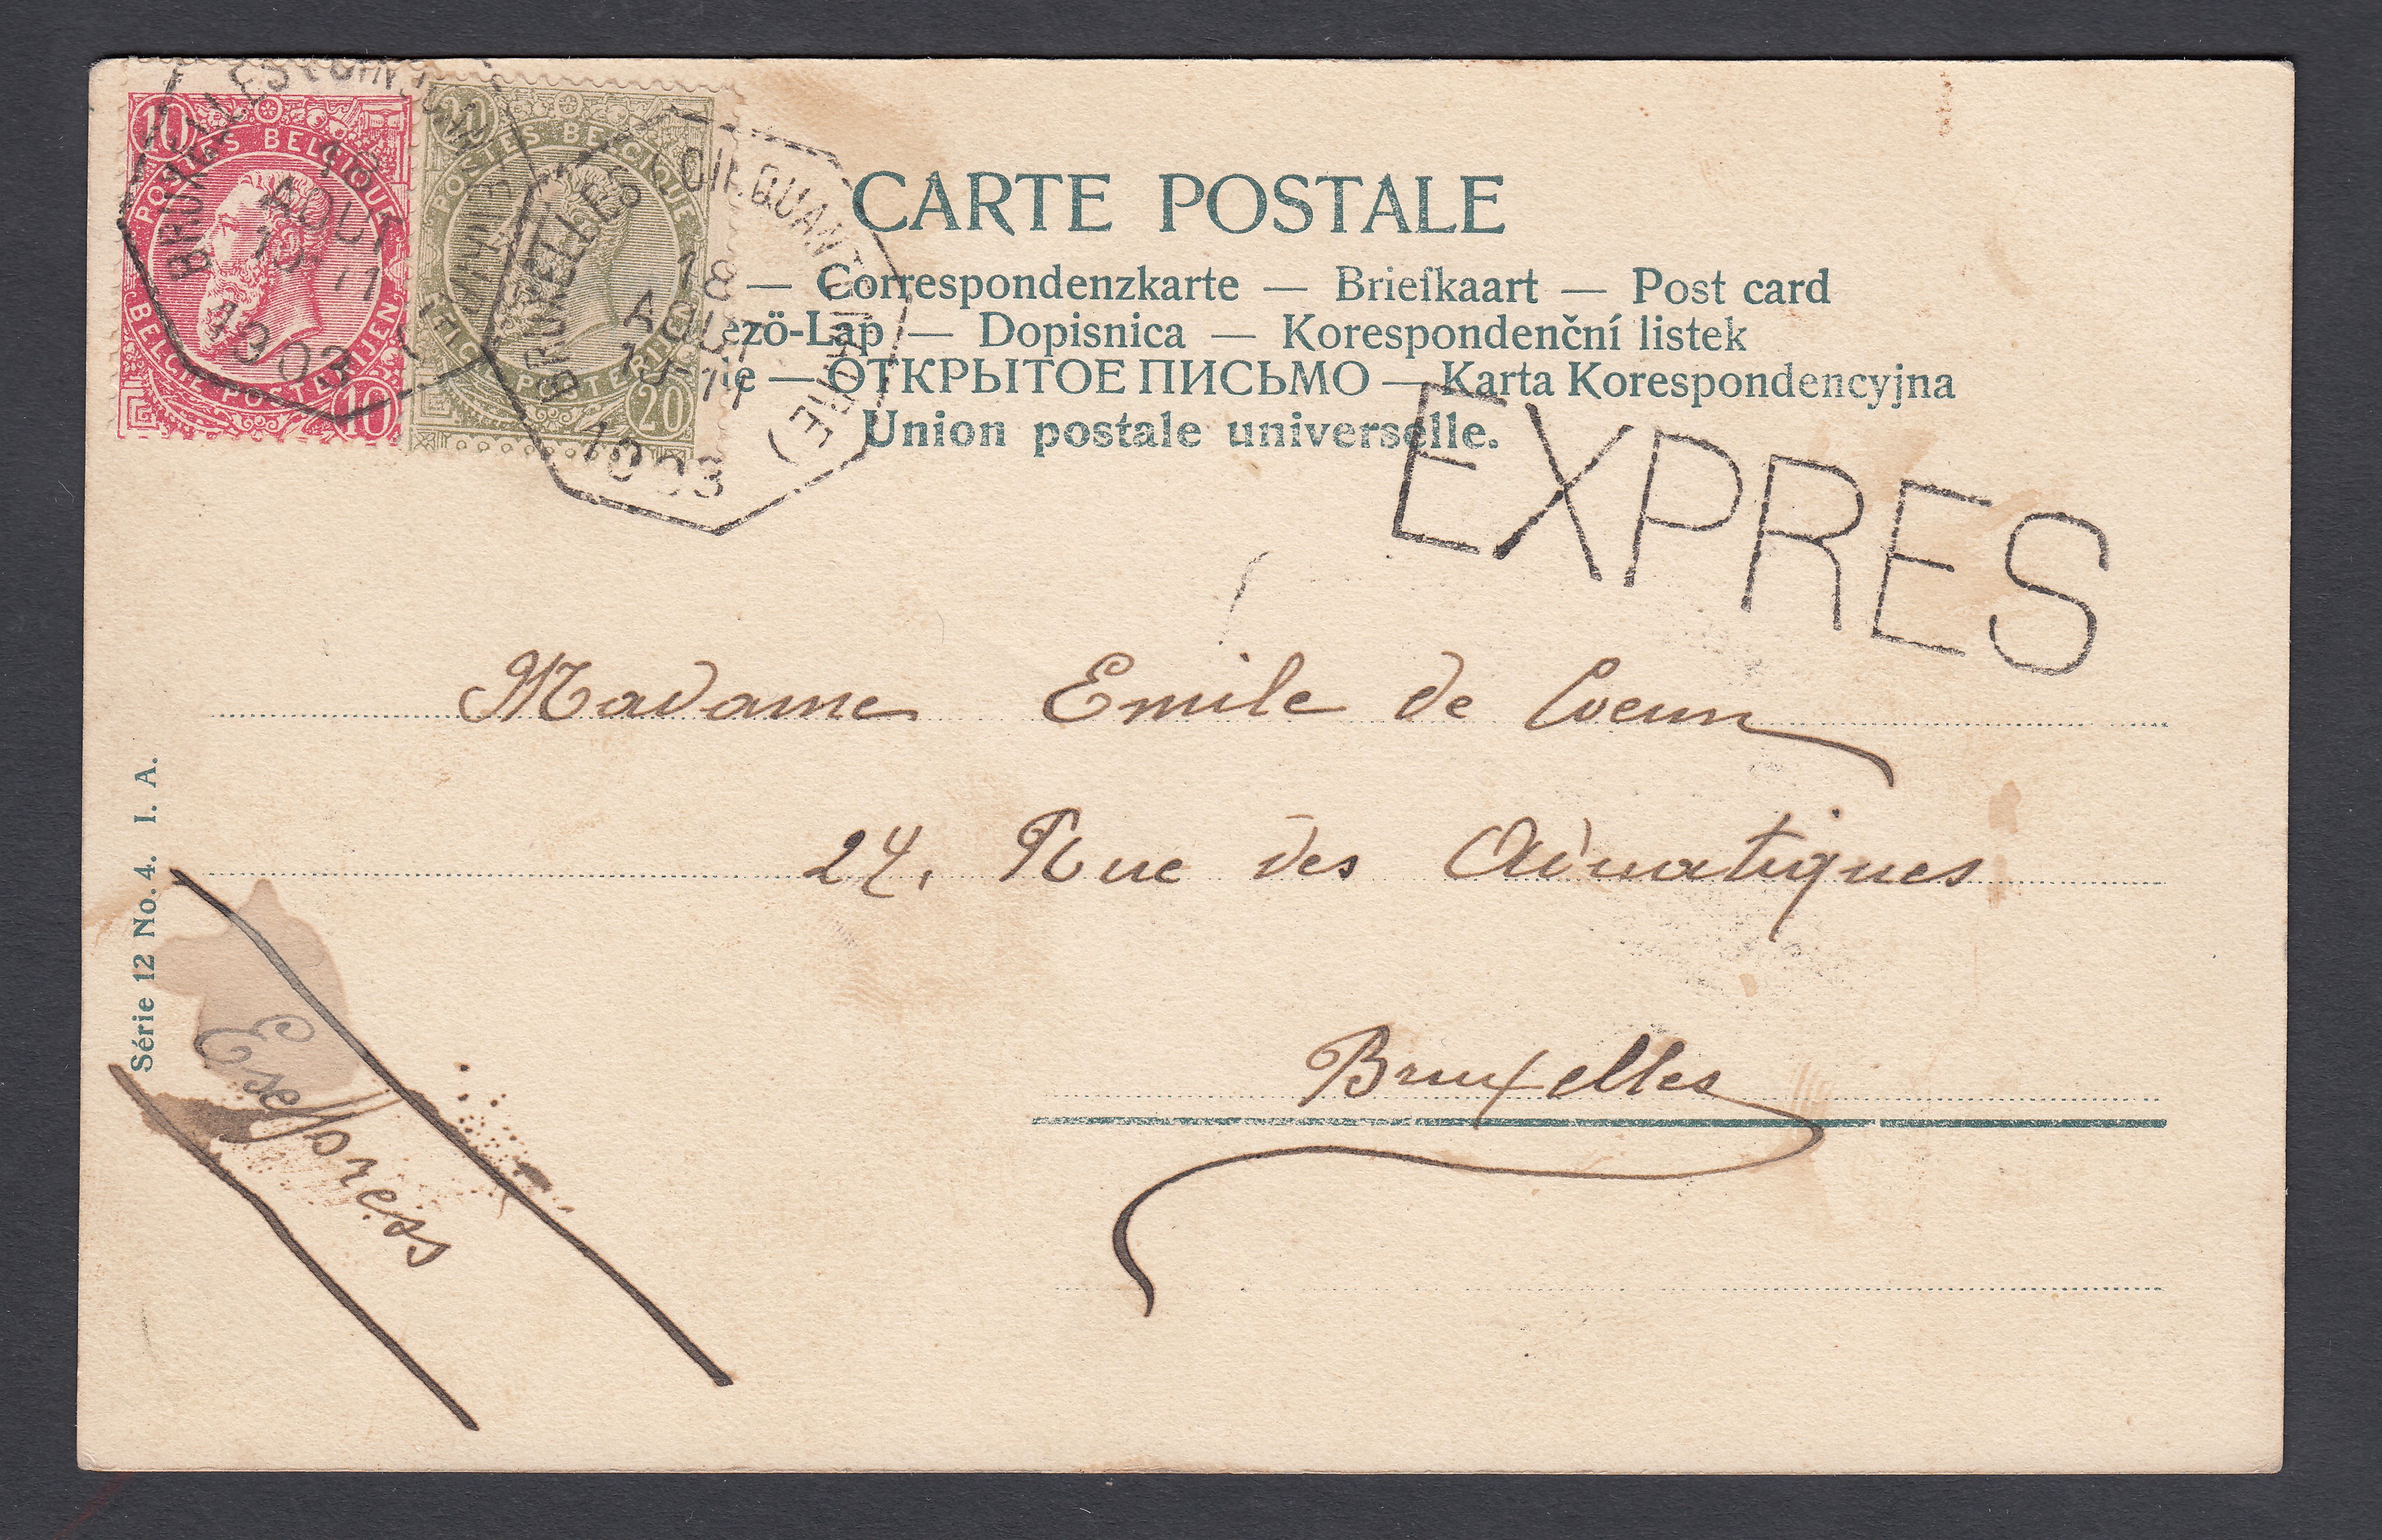 10 20
POSTES BELGIQUE POSTES BELGIQUE
BELGIE POSTERIJEN BELGIE POSTERIJEN
10 20
BRUXELLES
18
AOUT
10-11
1903
BRUXELLES CINQUANTENAIRE)
18
AOUT
10-11
1903
CARTE POSTALE
— Correspondenzkarte — Briefkaart — Post card
ezö-Lap — Dopisnica — Korespondenční listek
— ОТКРЫТОЕ ПИСЬМО — Karta Korespondencyjna
Union postale universelle.
EXPRES
Madame Emile de
24, Rue des Aduatiques
Bruxelles
Série 12 No. 4. I. A.
Express